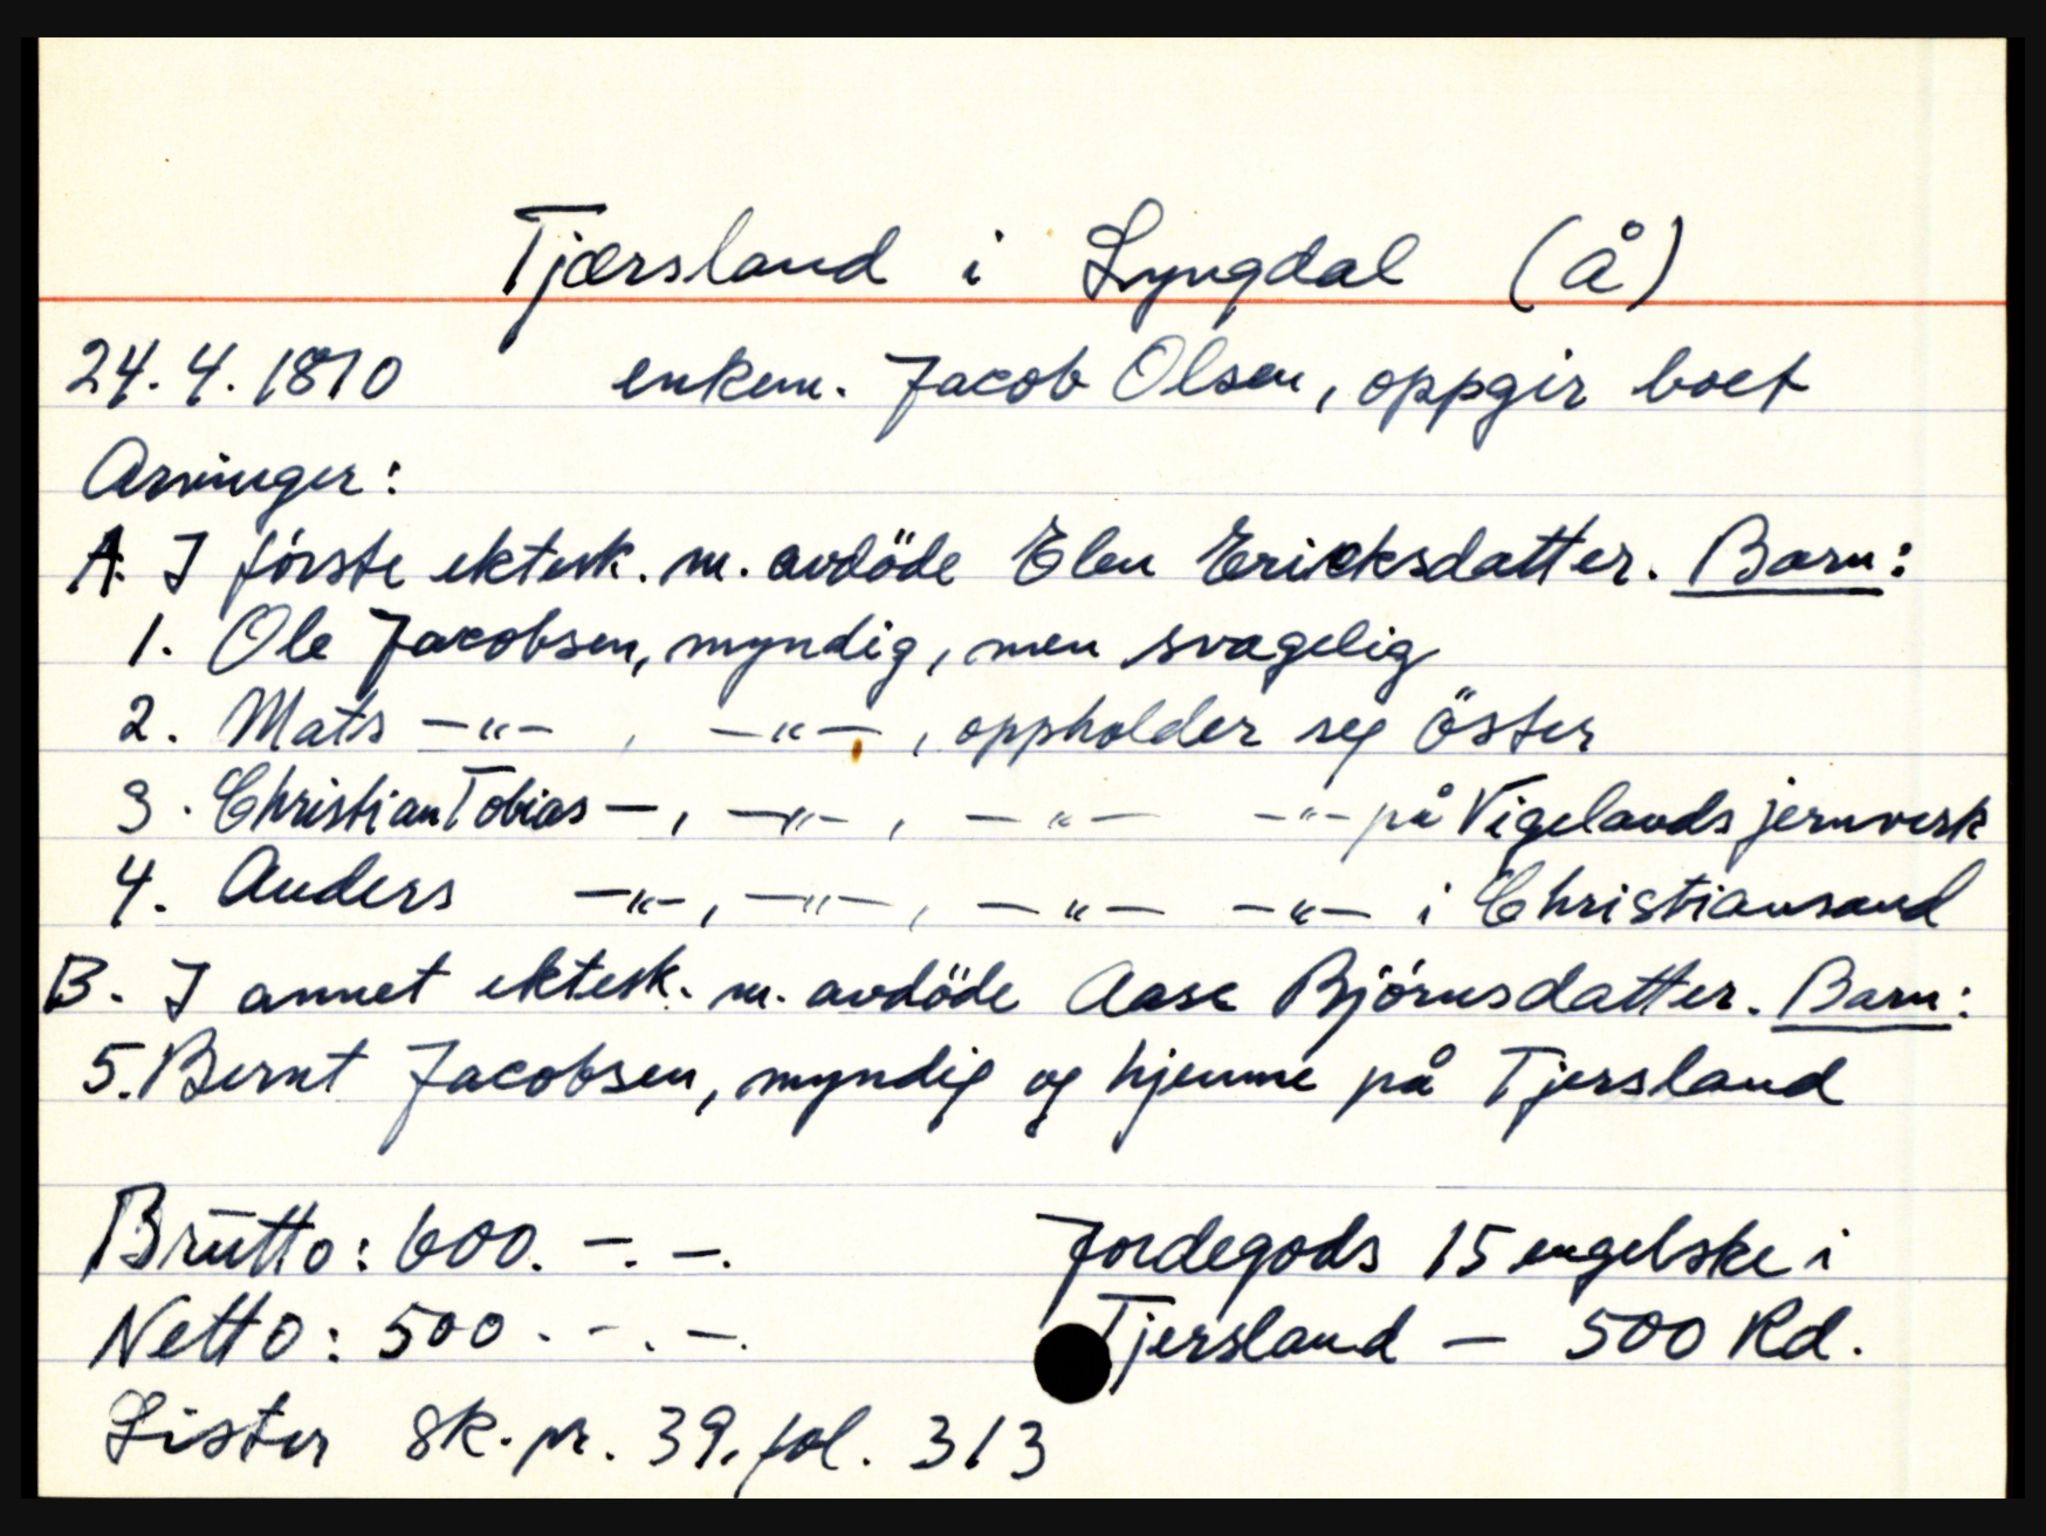 Tjærsland i Lyngdal (Å)
24.4.1810 enkem. Jacob Olsen, oppgir boet
Arvinger:
A. I förste ektesk. m. avdöde Elen Ericksdatter. Barn:
1. Ole Jacobsen, myndig, men svagelig
2. Mats —"— , —"— , oppholder seg öster
3. Christian Tobias —, —"— , —"— —"— på Vigelands jernverk
4. Anders —"—, —"—, —"— —"— i Christiansand
B. I annet ektesk. m. avdöde Aase Björnsdatter. Barn:
5. Bernt Jacobsen, myndig og hjemme på Tjersland
Brutto: 600. —. —. Jordegods 15 engelske i
Netto: 500. —. —. Tjersland — 500 Rd.
Lister sk. pr. 39, fol. 313